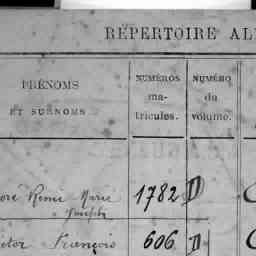 RÉPERTOIRE AL
PRÉNOMS
ET SURNOMS
NUMÉROS
ma-
tricules.
NUMÉRO
du
volume.
Remi Marie 1782 D
Joseph
François 606 D